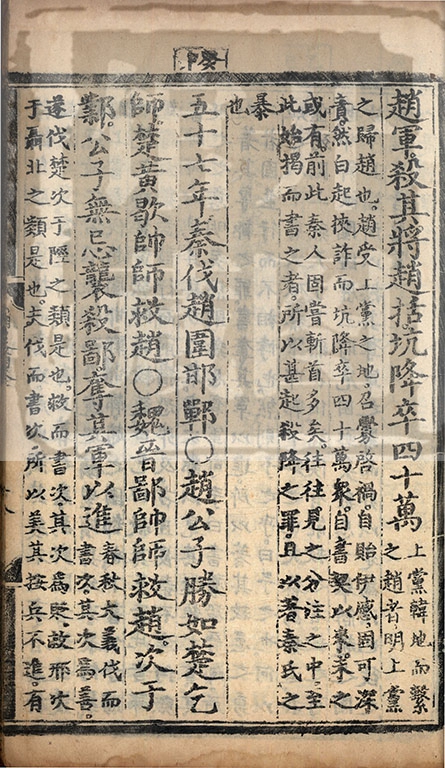 趙軍殺其將趙括坑降卒四十萬
上黨韓地而繫
之趙者明上黨
之歸趙也。趙受上黨之地。召釁啓禍。自貽伊慼。固可深
責然白起挾詐而坑降卒四十萬衆。自書契以來。未之
或有前此秦人固嘗斬首多矣。往往見之分注之中。至
此始揭而書之者。所以甚起殺降之罪。且以著秦氏之
暴
也
五十七年秦伐趙圍邯鄲○趙公子勝如楚乞
師。楚黃歇帥師救趙○魏晉鄙帥師救趙。次于
鄴。公子無忌襲殺鄙。奪其軍以進
春秋大義伐而
書次。其次爲善。
遂伐楚次于陘之類是也。救而書次其次爲貶。故邢次
于聶北之類是也。夫伐而書次。所以美其按兵不進。有